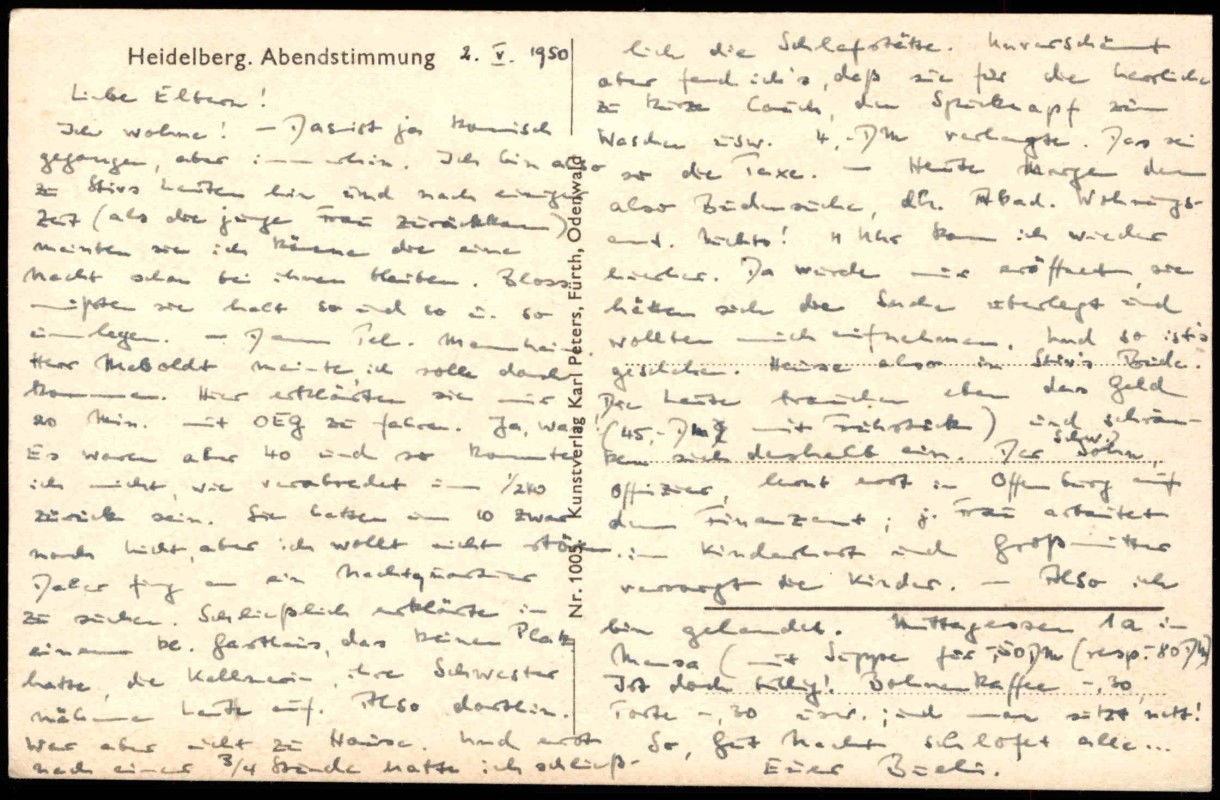 Heidelberg. Abendstimmung 2. V. 1950
Liebe Eltern!
Ich wohne! - Das ist ja komisch
gegangen, aber immerhin. Ich bin also
zu Stirs Leuten hin und nach einiger
Zeit (als die junge Frau zurückkam)
meinten sie ich könne die eine
Nacht schon bei ihnen bleiben. Bloss
müßten sie halt so und so u. so
einlegen. - Dann Tel. Mannheim.
Herr Maboldt meinte, ich solle doch
kommen. Hier erklärten sie mir
20 Min. mit OEG zu fahren. Ja, was!
Es waren aber 40 und so konnte
ich nicht, wie verabredet um 1/2 10
zurück sein. Sie hatten um 10 zwar
noch Licht, aber ich wollt nicht stören.
Daher fing an ein Nachtquartier
zu suchen. Schließlich erklärte in
einem kl. Gasthaus, das keinen Platz
hatte, die Kellnerin, ihre Schwester
nähme Leute auf. Also dorthin.
War aber nicht zu Hause. Und erst
nach einer 3/4 Stunde hatte ich schließ-
Nr. 1005. Kunstverlag Karl Peters, Fürth, Odenwald
lich die Schlafstätte. Unverschämt
aber fand ich's, daß sie für die herrliche
zu kurze Couch, den Spucknapf zum
Waschen usw. 4,-DM verlangte. Das sei
so die Taxe. - Heute Morgen dann
also Budensuche, dh. Akad. Wohnungs-
amt. Nichts! 11 Uhr kam ich wieder
hierher. Da wurde mir eröffnet, sie
hätten sich die Sache überlegt und
wollten mich aufnehmen. Und so ist's
geschehen. Hause also in Stirs Bude.
Die Leute brauchen eben das Geld
(45,-DM mit Frühstück) und schrän-
ken sich deshalb ein. Der Schw. Sohn,
Offizier, lernt erst in Offenburg auf
dem Finanzamt; j. Frau arbeitet
im Kinderhort und Großmutter
versorgt die Kinder. - Also ich
bin gelandet. Mittagessen 1a in
Mensa (mit Suppe für -,50DM (resp. -,80DM)
Ist doch billig! Bohnenkaffee -,30,
Torte -,30 usw.; und man sitzt nett!
So, gut Nacht schlafet alle...
Euer